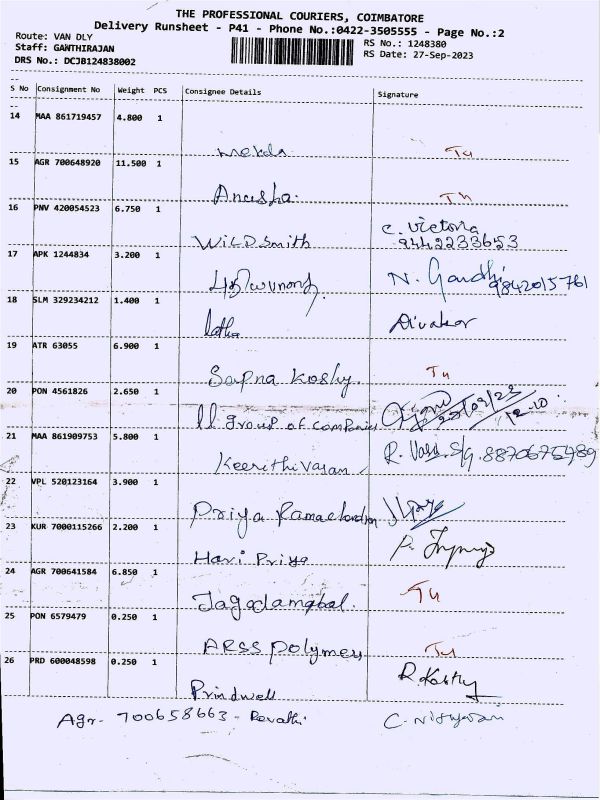 THE PROFESSIONAL COURIERS, COIMBATORE
Delivery Runsheet - P41 - Phone No.:0422-3505555 - Page No.:2
Route: VAN DLY
Staff: GANTHIRAJAN
DRS No.: DCJB124838002
RS No.: 1248380
RS Date: 27-Sep-2023
S No Consignment No Weight PCS Consignee Details Signature
14 MAA 861719457 4.800 1
15 AGR 700648920 11.500 1
Anusha.
16 PNV 420054523 6.750 1
Wild Smith C. Victoria 9442233653
17 APK 1244834 3.200 1
N. Gandhi 9842015761
18 SLM 329234212 1.400 1
latha Divakar
19 ATR 63055 6.900 1
Sapna Koshy.
20 PON 4561826 2.650 1
ll group of companies 12.10
21 MAA 861909753 5.800 1
Keerithivasan R. Vasu. S/g. 8870675989
22 VPL 520123164 3.900 1
Priya Ramachandran
23 KUR 7000115266 2.200 1
Hari Priya
24 AGR 700641584 6.850 1
Jagadambal.
25 PON 6579479 0.250 1
ARSS Polymers
26 PRD 600048598 0.250 1
Prindwell
Agr- 700658663 - Revathi